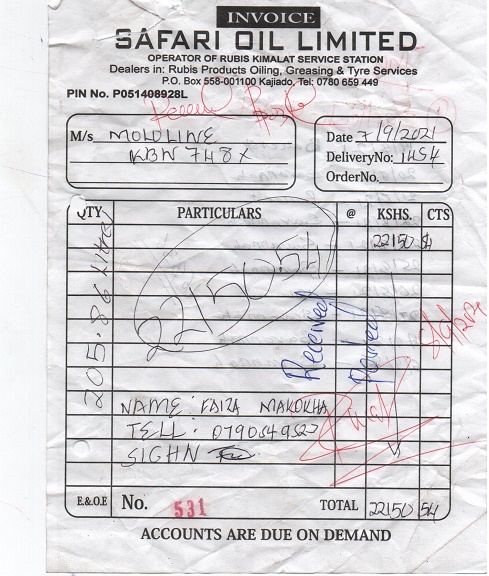 INVOICE
SAFARI OIL LIMITED
OPERATOR OF RUBIS KIMALAT SERVICE STATION
Dealers in: Rubis Products Oiling, Greasing & Tyre Services
P.O. Box 558-001100 Kajiado, Tel: 0780 659 449
PIN No. P051408928L
M/s MOLOLINE
KBW 748X
Date 7/9/2021
DeliveryNo: 1454
OrderNo.
QTY PARTICULARS @ KSHS. CTS
22150 54
205.86 Litres
22150.54
Received
Posted
NAME: FAIZA MAKOKHA
TELL: 0790549527
SIGHN
E.&.O.E No. 531 TOTAL 22150 54
ACCOUNTS ARE DUE ON DEMAND